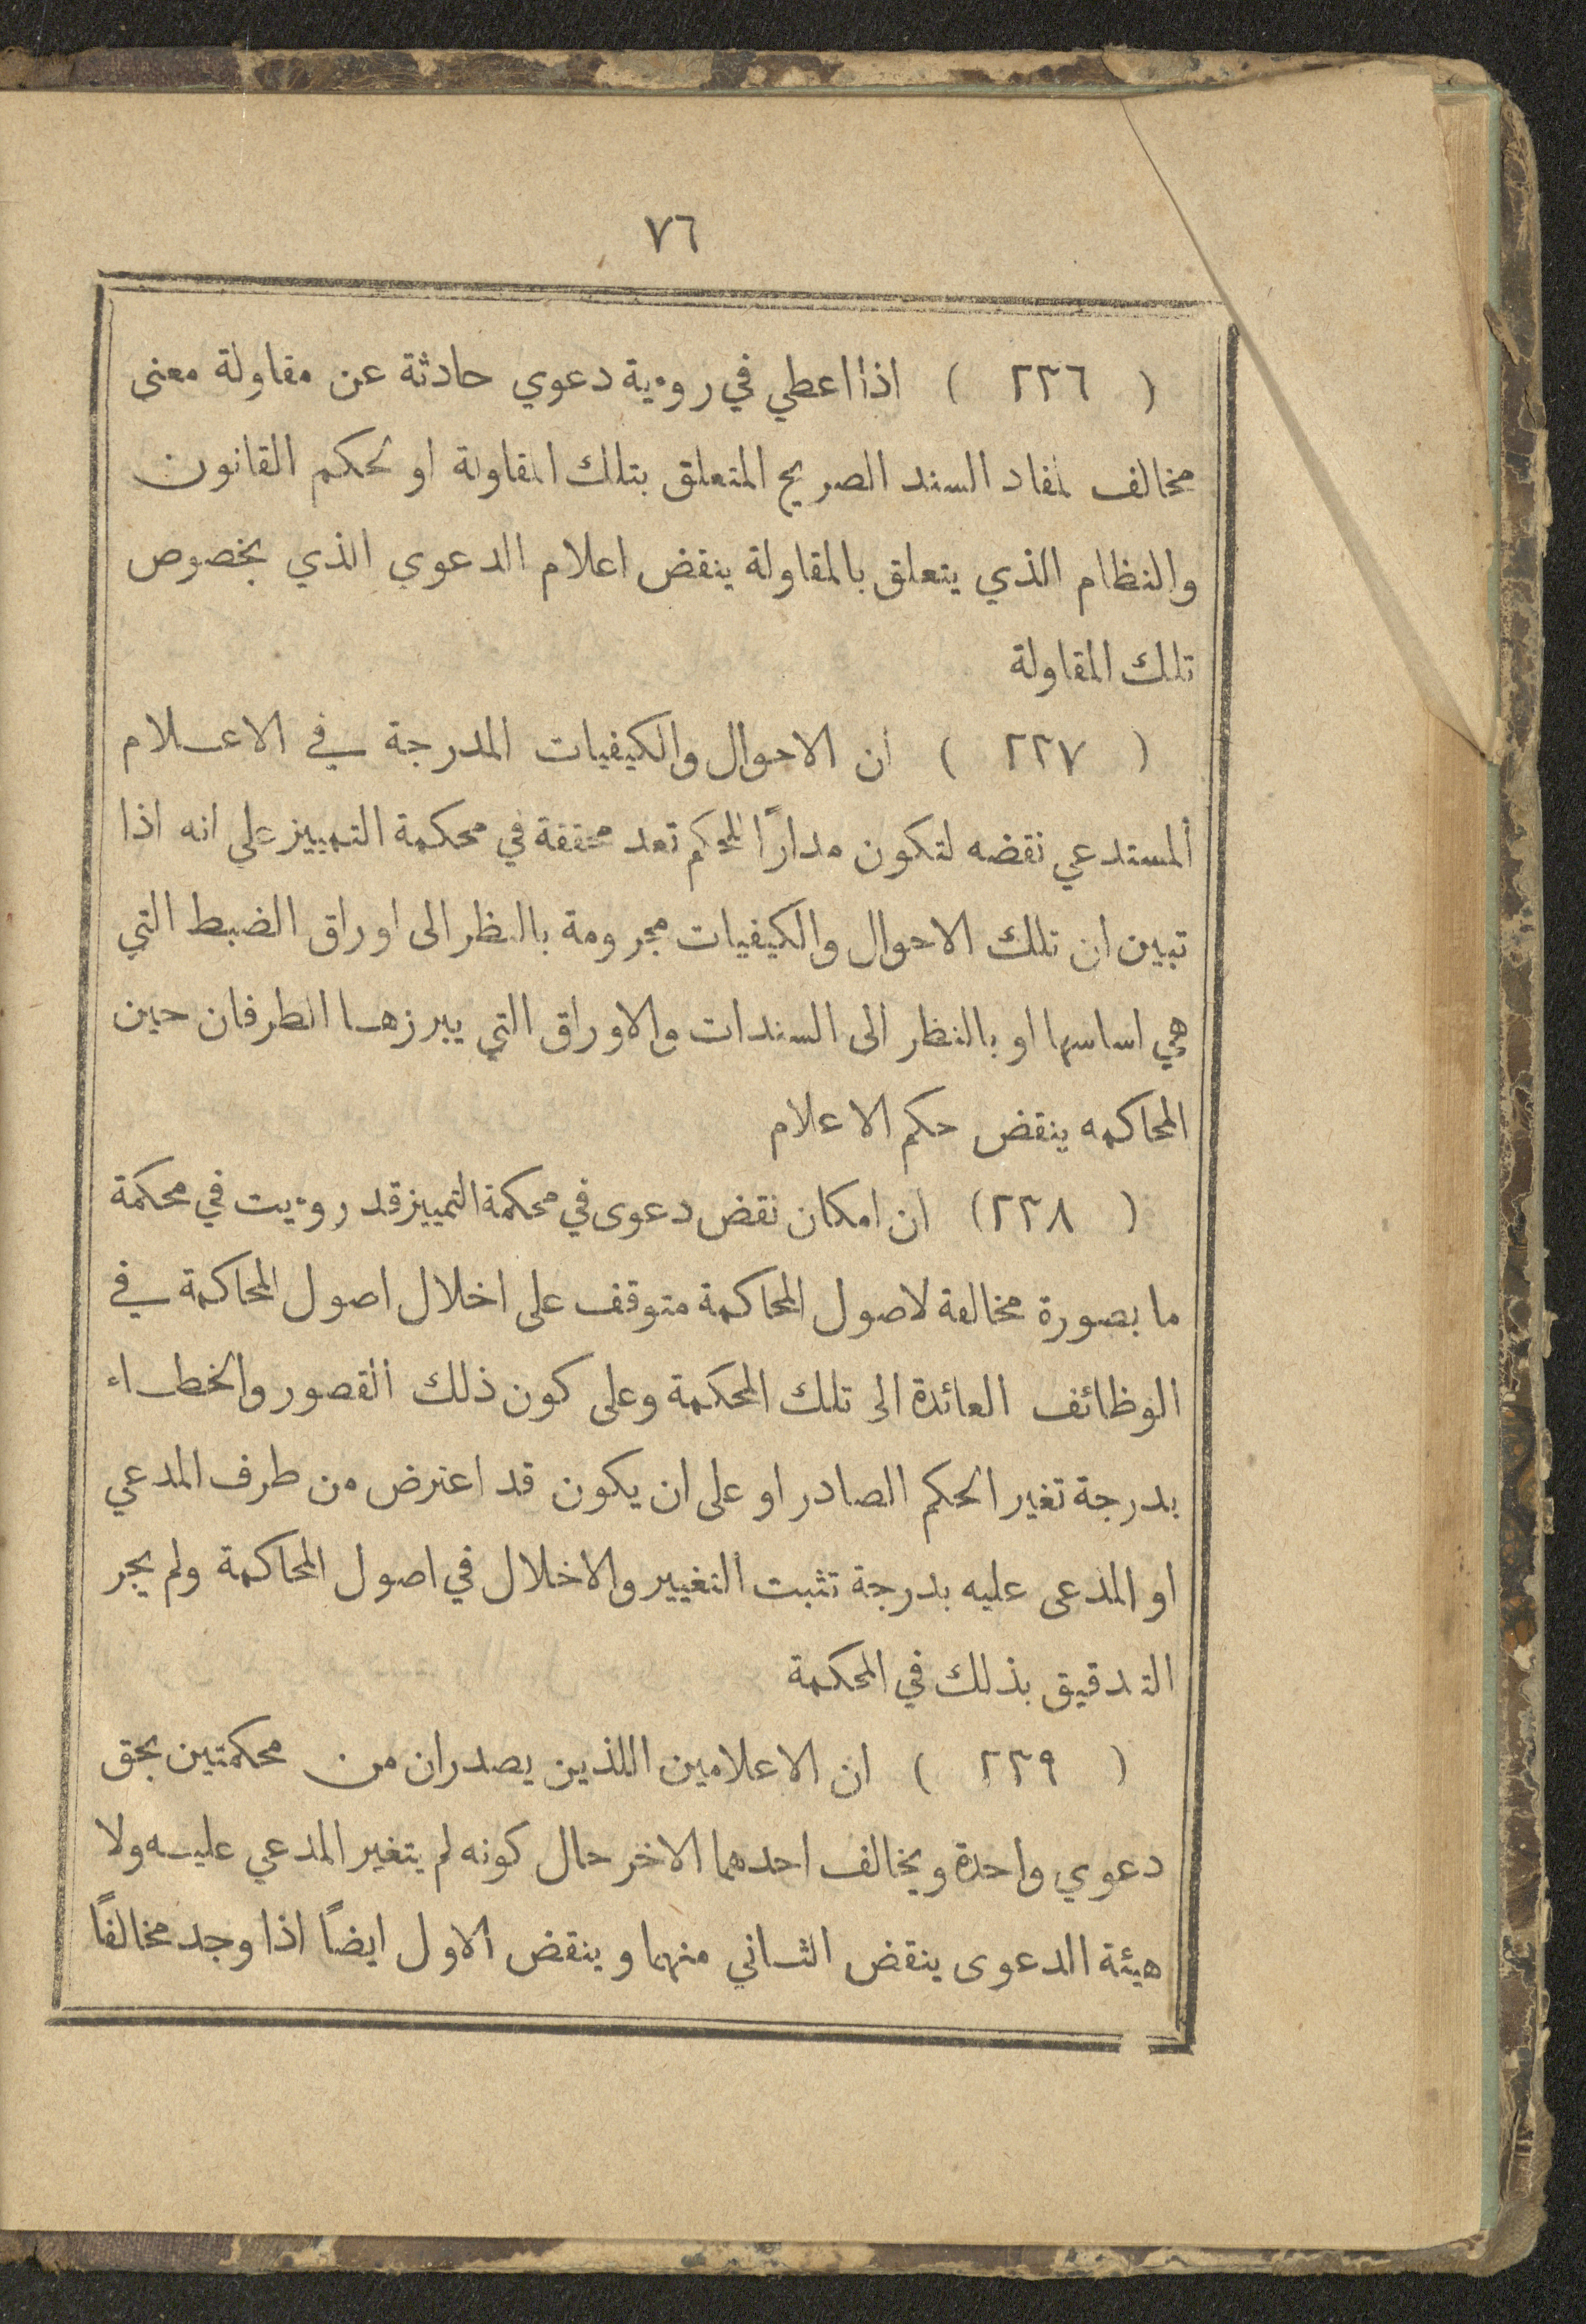 ٧٦
( ٢٣٦ ) اذا اعطي في روءية دعوي حادثة عن مقاولة معنى
مخالف لمفاد السند الصريح المتعلق بتلك المقاولة او لحكم القانون
والنظام الذي يتعلق بالمقاولة ينقض اعلام الدعوي الذي بخصوص
تلك المقاولة
( ٢٣٧ ) ان الاحوال والكيفيات المدرجة في الاعلام
المستدعي نقضه لتكون مدارًا للحكم تعد محققة في محكمة التمييز علي انه اذا
تبين ان تلك الاحوال والكيفيات مجرومة بالنظر الى اوراق الضبط التي
هي اساسها او بالنظر الى السندات والاوراق التي يبرزها الطرفان حين
المحاكمه ينقض حكم الاعلام
( ٢٣٨ ) ان امكان نقض دعوى في محكمة التمييز قد روءيت في محكمة
ما بصورة مخالفة لاصول المحاكمة متوقف على اخلال اصول المحاكمة في
الوظائف العائدة الى تلك المحكمة وعلى كون ذلك القصور والخطاء
بدرجة تغير الحكم الصادر او على ان يكون قد اعترض من طرف المدعي
او المدعى عليه بدرجة تثبت التغيير والاخلال في اصول المحاكمة ولم يجر
التدقيق بذلك في المحكمة
( ٢٣٩ ) ان الاعلامين اللذين يصدران من محكمتين بحق
دعوي واحدة ويخالف احدهما الاخر حال كونه لم يتغير المدعي عليه ولا
هيئة الدعوى ينقض الثاني منهما وينقض الاول ايضًا اذا وجد مخالفًا